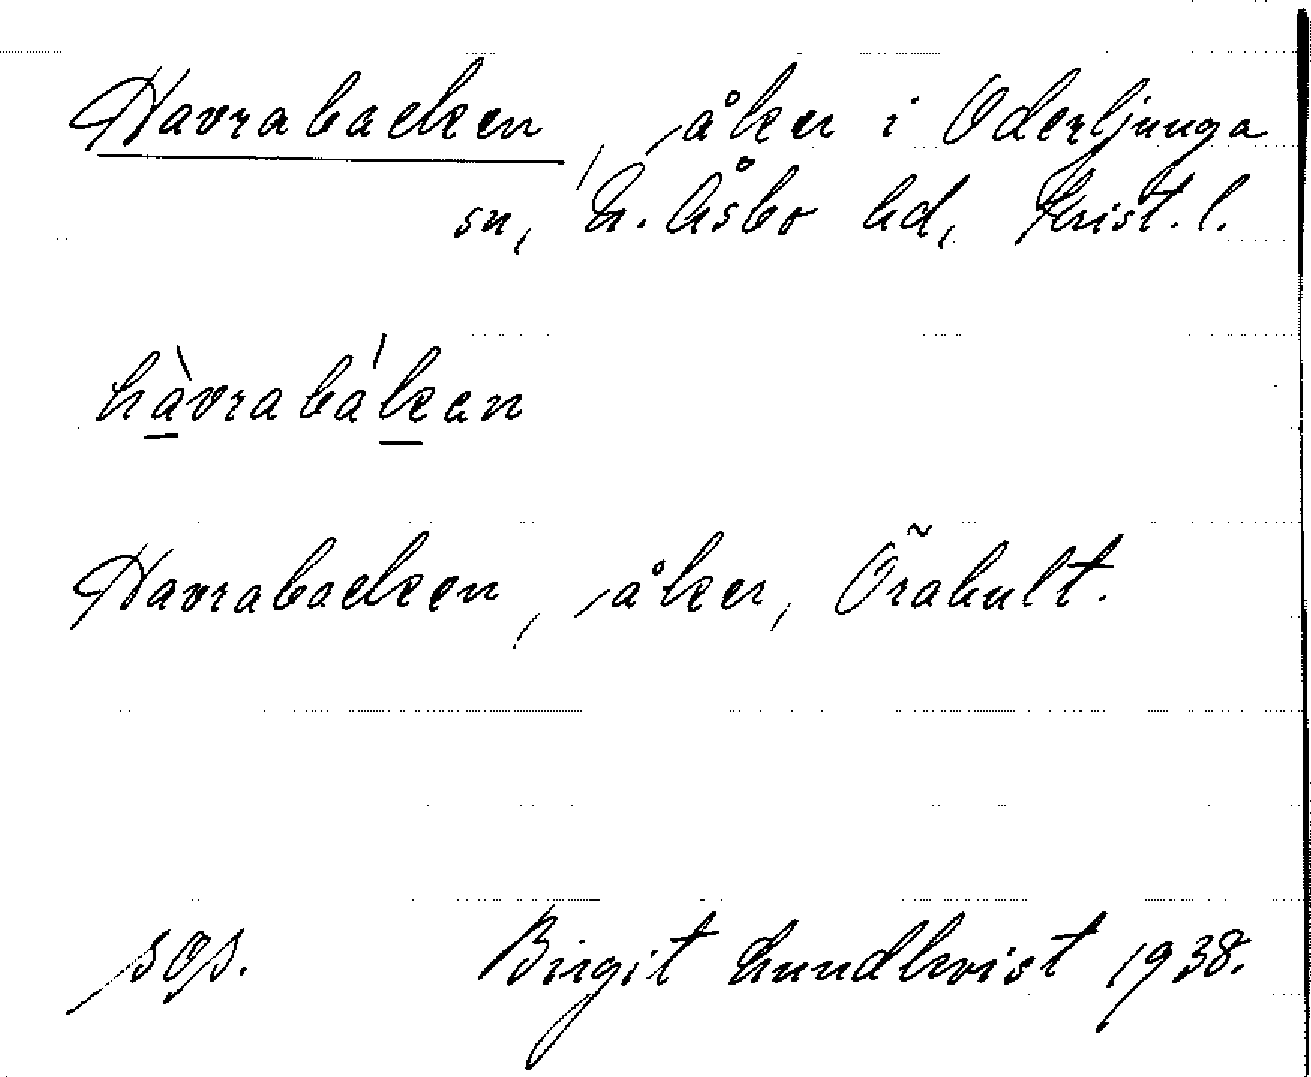 Havrabacken, åker i Oderljunga
sn, N. Åsbo hd, Krist. l.
hàvrabákan
Havrabacken, åker, Õrahult.
sgs. Birgit Lundkvist 1938.